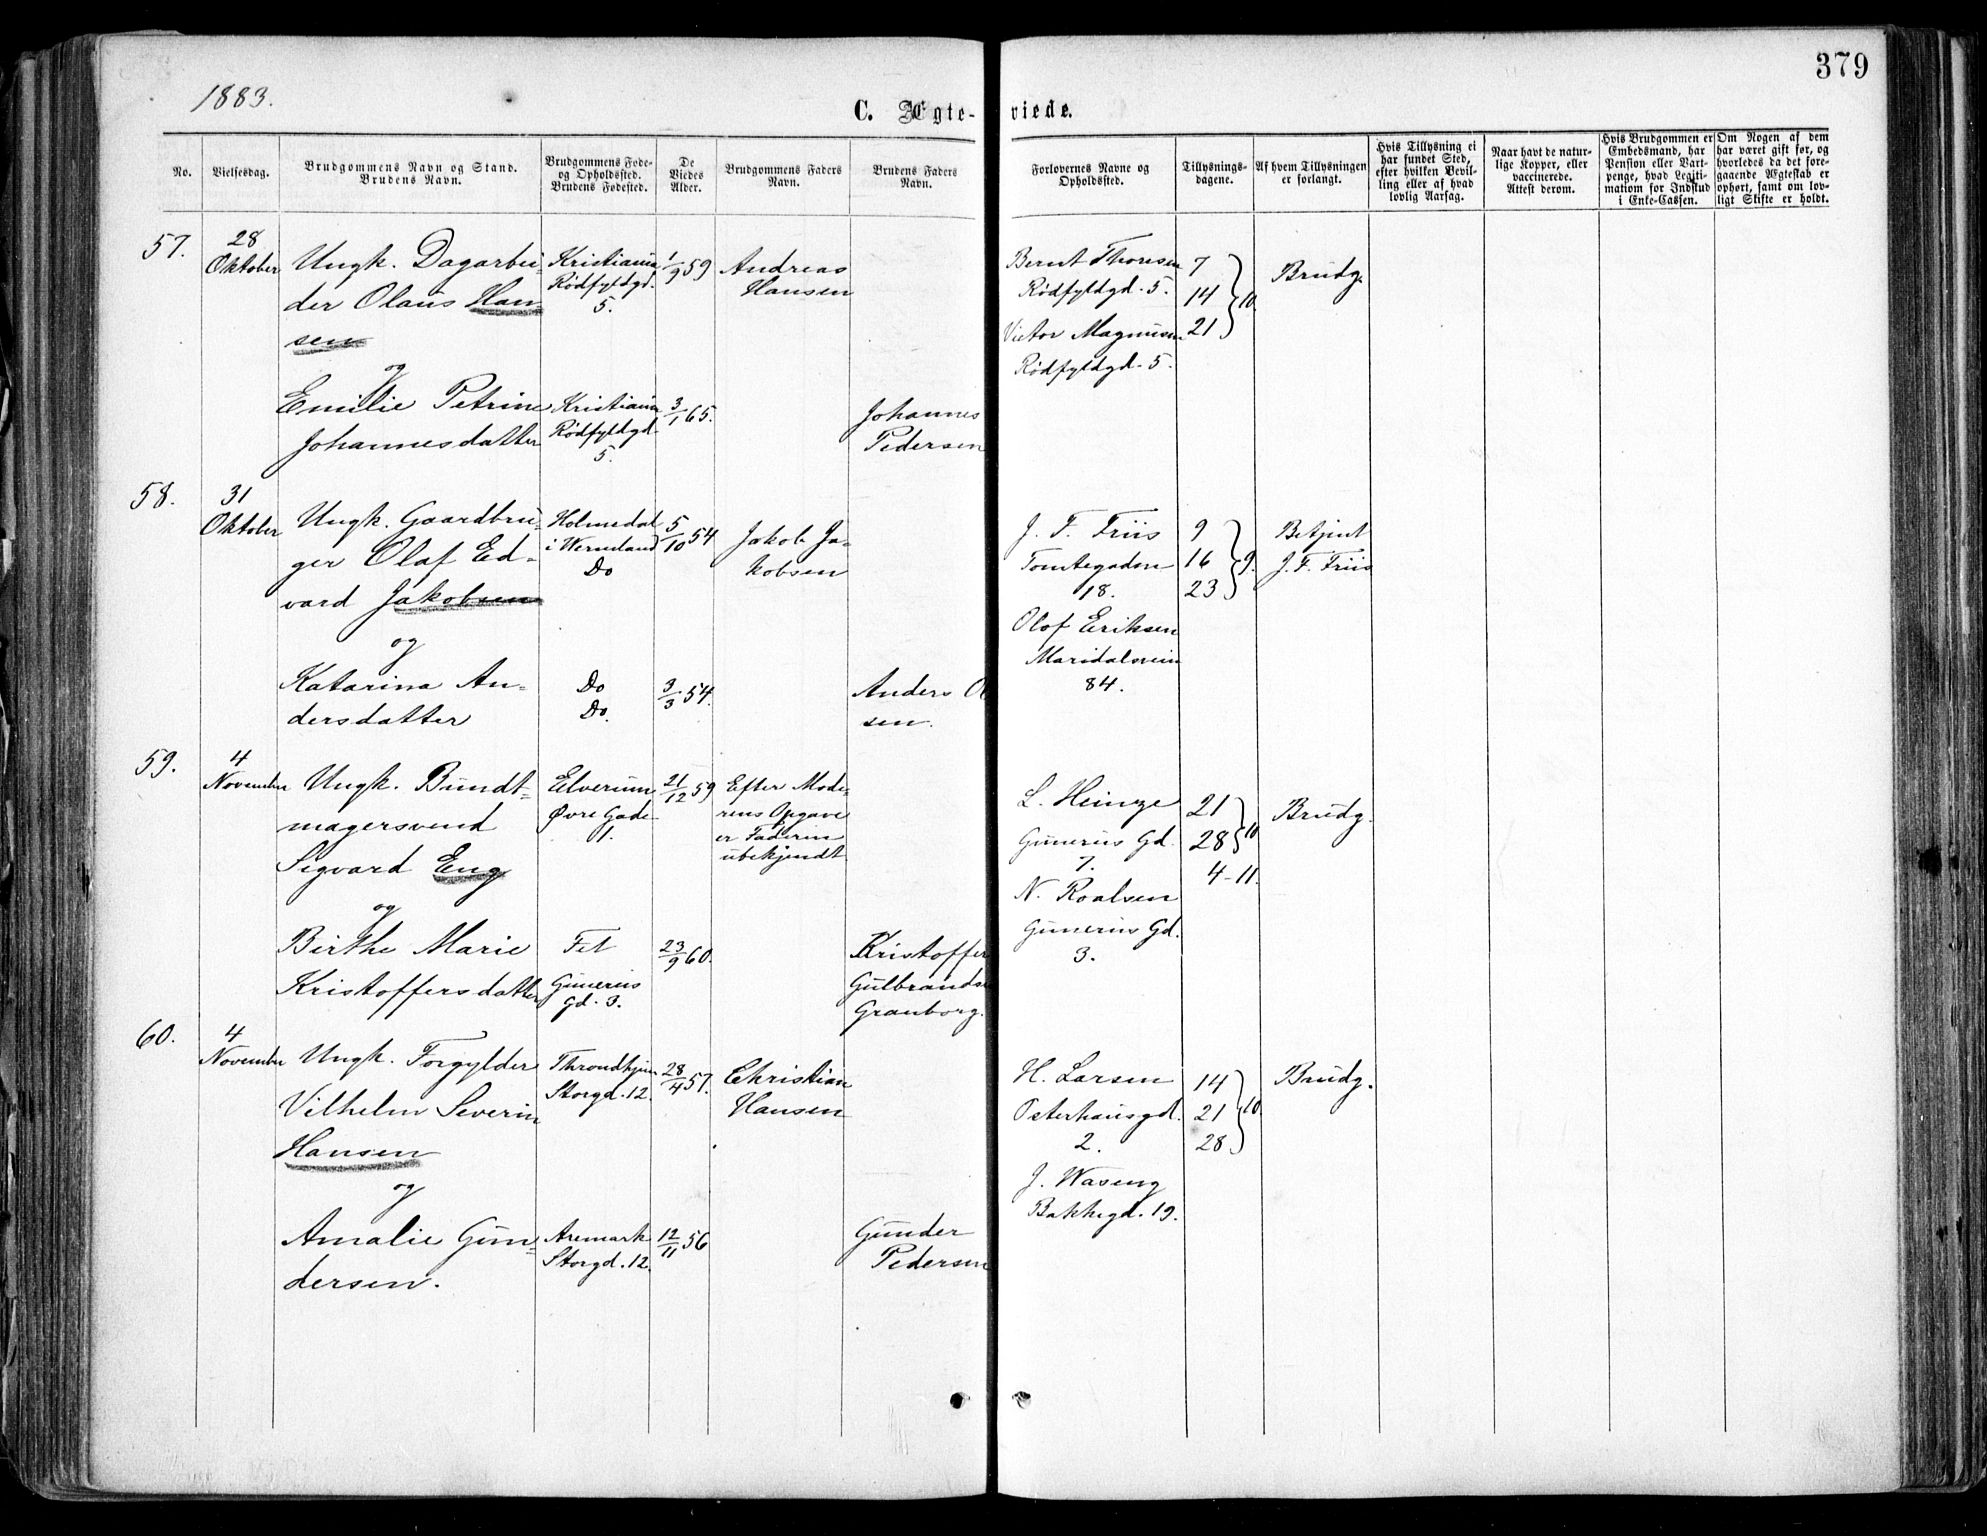 379
1883.
C. Ægte-viede.
No.
Vielsesdag.
Brudgommens Navn og Stand.
Brudens Navn.
Brudgommens Føde-
og Opholdssted.
Brudens Fødested.
De
Viedes
Alder.
Brudgommens Faders
Navn.
Brudens Faders
Navn.
Forlovernes Navne og
Opholdssted.
Tillysnings-
dagene.
Af hvem Tillysningen
er forlangt.
Hvis Tillysning ei
har fundet Sted,
efter hvilken Bevil-
ling eller af hvad
lovlig Aarsag.
Naar havt de natur-
lige Kopper, eller
vaccinerede.
Attest derom.
Hvis Brudgommen er
Embedsmand, har
Pension eller Vart-
penge, hvad Legiti-
mation for Indskud
i Enke-Cassen.
Om Nogen af dem
har været gift før, og
hvorledes da det fore-
gaaende Ægteskab er
ophørt, samt om lov-
ligt Skifte er holdt.
57.
28
Oktober
Ungk. Dagarbei-
der Olaus Han-
sen
og
Emilie Petrine
Johannesdatter
Kristiania
Rødfyldgd.
5.
Kristiania
Rødfyldgd.
5.
1/9 59
3/1 65.
Andreas
Hansen
Johannes
Pedersen
Bernt Thoresen
Rødfyldgd. 5.
Victor Magnusen
Rødfyldgd. 5.
7
14
21
10.
Brudg.
58.
31
Oktober
Ungk. Gaardbru-
ger Olaf Ed-
vard Jakobsen
og
Katarina An-
dersdatter
Holmedal
i Wermland
Do
Do
Do.
5/10 54
3/3 54.
Jakob Ja-
kobsen
Anders Ol
sen.
J. F. Friis
Tomtegaden
18.
Olof Eriksen
Maridalsvein
84.
9
16
23
9.
Betjent
J. F. Friis
59.
4
November
Ungk. Bundt-
magersvend
Sigvard Eng
og
Birthe Marie
Kristoffersdatter
Elverum
Øvre Gade
1.
Fet
Gunerius
Gd. 3.
21/12 59
23/9 60.
Efter Mode-
rens Opgave
er Faderen
ubekjendt
Kristoffer
Gulbrandsen
Granborg.
L. Heinze
Gunerius Gd.
7.
N. Roalsen
Gunerius Gd.
3.
21
28
10
4-11.
Brudg.
60.
4
November
Ungk. Forgylder
Vilhelm Severin
Hansen
og
Amalie Gun-
dersen.
Throndhjem
Storgd. 12.
Aremark
Storgd. 12.
28/4 57.
12/11 56
Christian
Hansen
Gunder
Pedersen
H. Larsen
Osterhausgd.
2.
J. Waseng
Bakkegd. 19.
14
21
28
10.
Brudg.